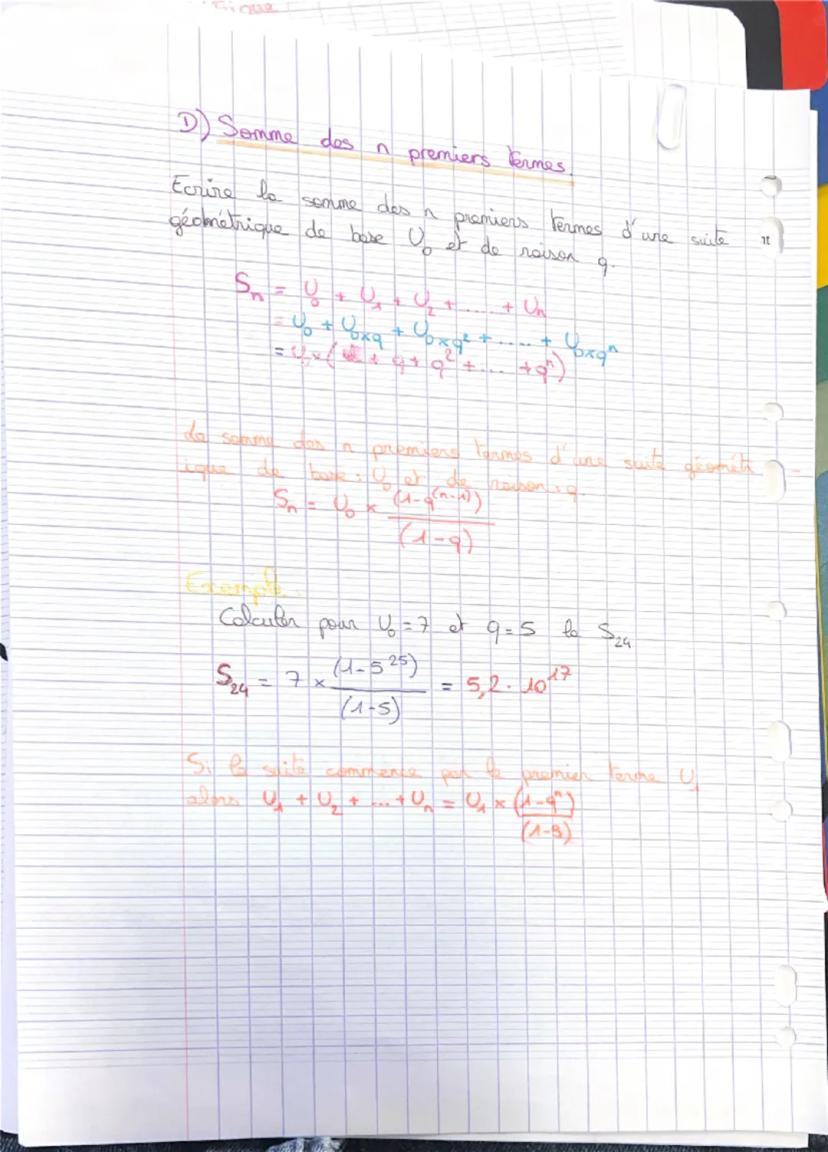 D) Somme des n premiers termes.
Ecrire la somme des n premiers termes d'une suite
géométrique de base U₀ et de raison q.
Sₙ = U₀ + U₁ + U₂ + ..... + Uₙ
= U₀ + U₀×q + U₀×q² + ..... + U₀×qⁿ
= U₀×( + q + q² + ... + qⁿ)
La somme des n premiers termes d'une suite géométr-
ique de base : U₀ et de raison : q.
Sₙ = U₀ × (1-q⁽ⁿ⁻¹⁾)
(1-q)
Exemple.
Calculer pour U₀ = 7 et q = 5 la S₂₄
S₂₄ = 7 × (1-5²⁵) = 5,2 · 10¹⁷
(1-5)
Si la suite commence par le premier terme U₁
alors U₁ + U₂ + ... + Uₙ = U₁ × (1-qⁿ)
(1-q)